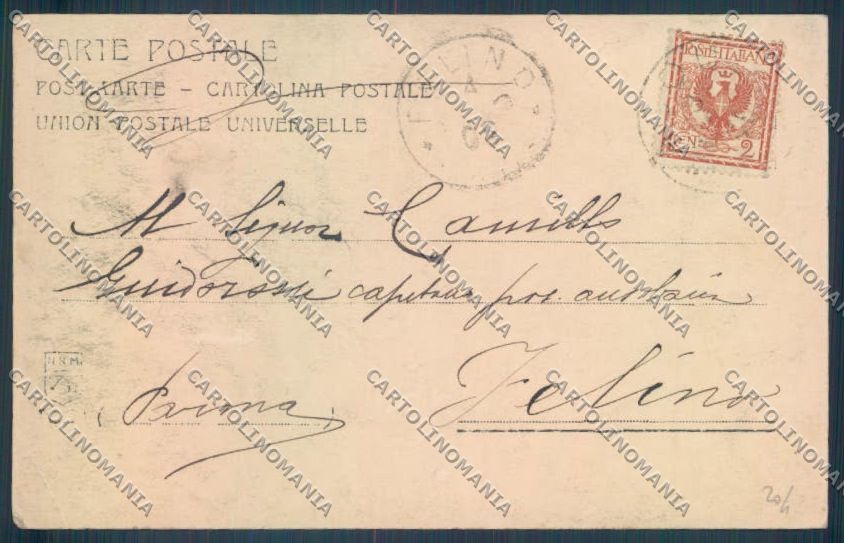 CARTE POSTALE
POSTKARTE – CARTOLINA POSTALE
UNION POSTALE UNIVERSELLE
FELINO
POSTE ITALIANE
CEN. 2
Al Signor Camillo
Guidorossi capitano
Felino
(Parma)
N.R.M.
20/1
CARTOLINOMANIA